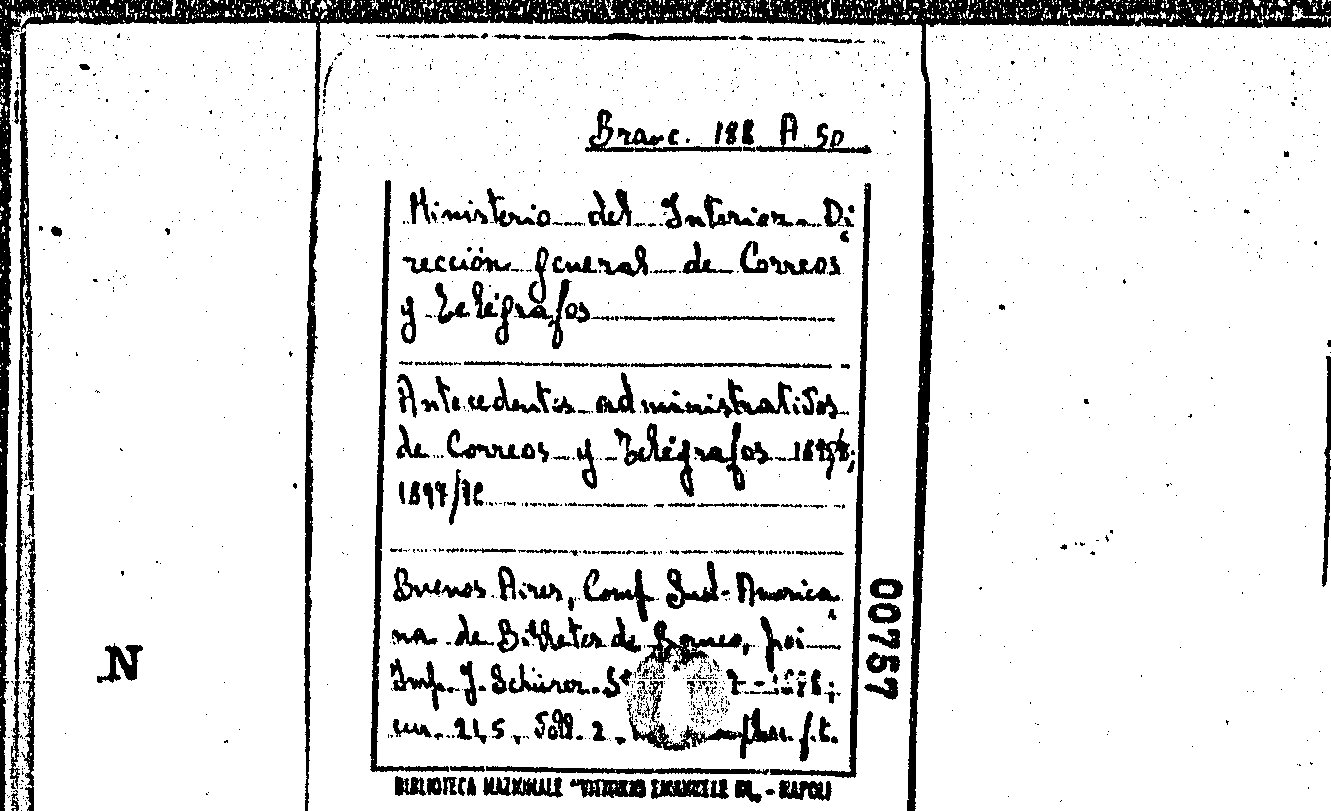 Branc. 188 A 50
Ministerio del Interior. Di
rección general de Correos
y telégrafos
Antecedentes administrativos
de Correos y Telégrafos
1897/98
Buenos Aires, Comp. Sud-America
na de Billetes de Banco, poi
Imp. J. Schürer-
cm. 21,5, Voll. 2. f.t.
00757
N
BIBLIOTECA NAZIONALE "VITTORIO EMANUELE III" - NAPOLI